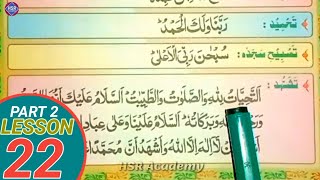 HSR
تَحْمِيْد :
رَبَّنَا وَلَكَ الْحَمْدُ
تَسْبِيحِ سَجْدَه :
سُبْحٰنَ رَبِّيَ الْاَعْلٰى
تَشَهُّد :
اَلتَّحِيَّاتُ لِلّٰهِ وَالصَّلَوٰتُ وَالطَّيِّبٰتُ اَلسَّلَامُ عَلَيْكَ اَيُّهَا
وَبَرَكَاتُهٗ اَلسَّلَامُ عَلَيْنَا وَعَلٰى عِبَادِ
لَّا اِلٰهَ اِلَّا اللّٰهُ وَاَشْهَدُ اَنَّ مُحَمَّدًا
PART 2
LESSON
22
HSR Academy